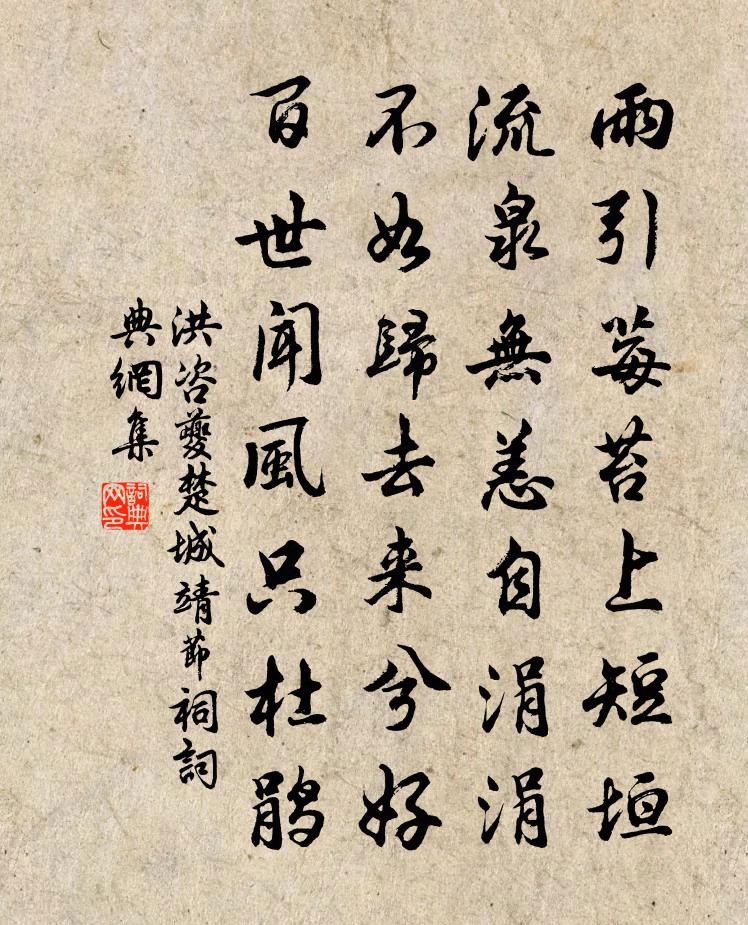 雨引莓苔上短垣
流泉無恙自涓涓
不如歸去来兮好
百世聞風只杜鵑
洪咨夔楚城靖節祠詞
典網集
詞典
网印